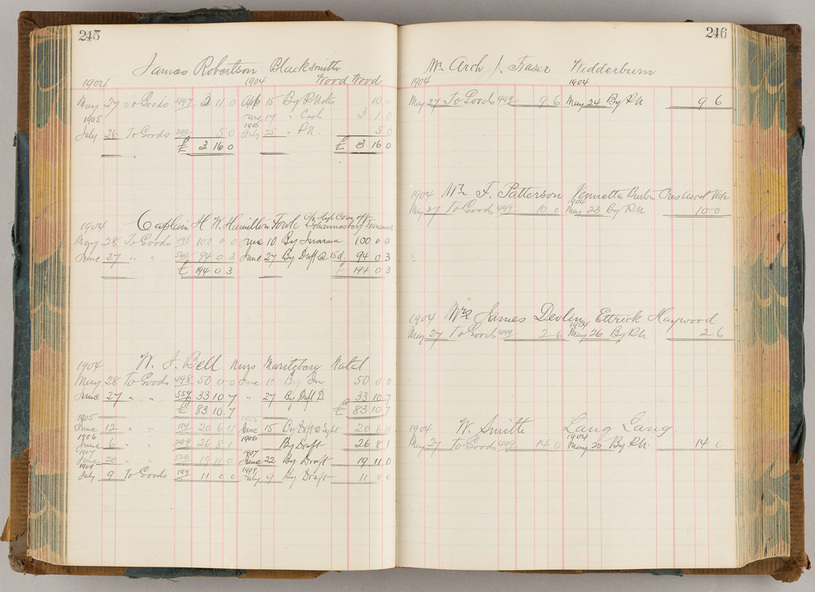 245
James Robertson Blacksmith
1904 1904 Wood Wood
May 27 To Goods 497 3 11 0 15 By P.Note 10
1905 17 " Cash 3 1 0
July 26 To Goods 5 0 July 25 " P.N. 5 0
£ 3 16 0 £ 3 16 0
1904 Captain H. W. Hamilton Fowle Johannesburg
May 28 To Goods 498 100 0 0 June 10 By 100 0 0
June 27 " " 560 94 0 3 June 27 By Draft @ 15d. 94 0 3
£ 194 0 3 £ 194 0 3
1904 W. J. Bell Maritzburg Natal
May 28 To Goods 498 50 0 0 June 10 By 50 0 0
June 27 " " 557 33 10 7 " 27 By Draft 33 10 7
£ 83 10 7 £ 83 10 7
1905
June 12 " " 20 6 11 June 15 By Dft 20 6 11
1906 1906
June 6 " 209 26 8 1 By Draft 26 8 1
1907 1907
June 20 19 11 0 June 22 By Draft 19 11 0
1909 1909
July 9 To Goods 199 11 0 0 July 4 By Draft 11 0 0
246
Mr Arch J. Fraser Wedderburn
1904 1904
May 27 To Goods 499 9 6 May 24 By P.N. 9 6
1904 Mr F. Patterson
May 27 To Goods 499 10 0 May 23 By P.N. 10 0
1904 Mrs James Devlin Ettrick Haywood
1904
May 27 To Goods 499 2 6 May 26 By P.N. 2 6
1904 W. Smith Lang Lang
1904
May 27 To Goods 499 14 0 May 20 By P.N. 14 0